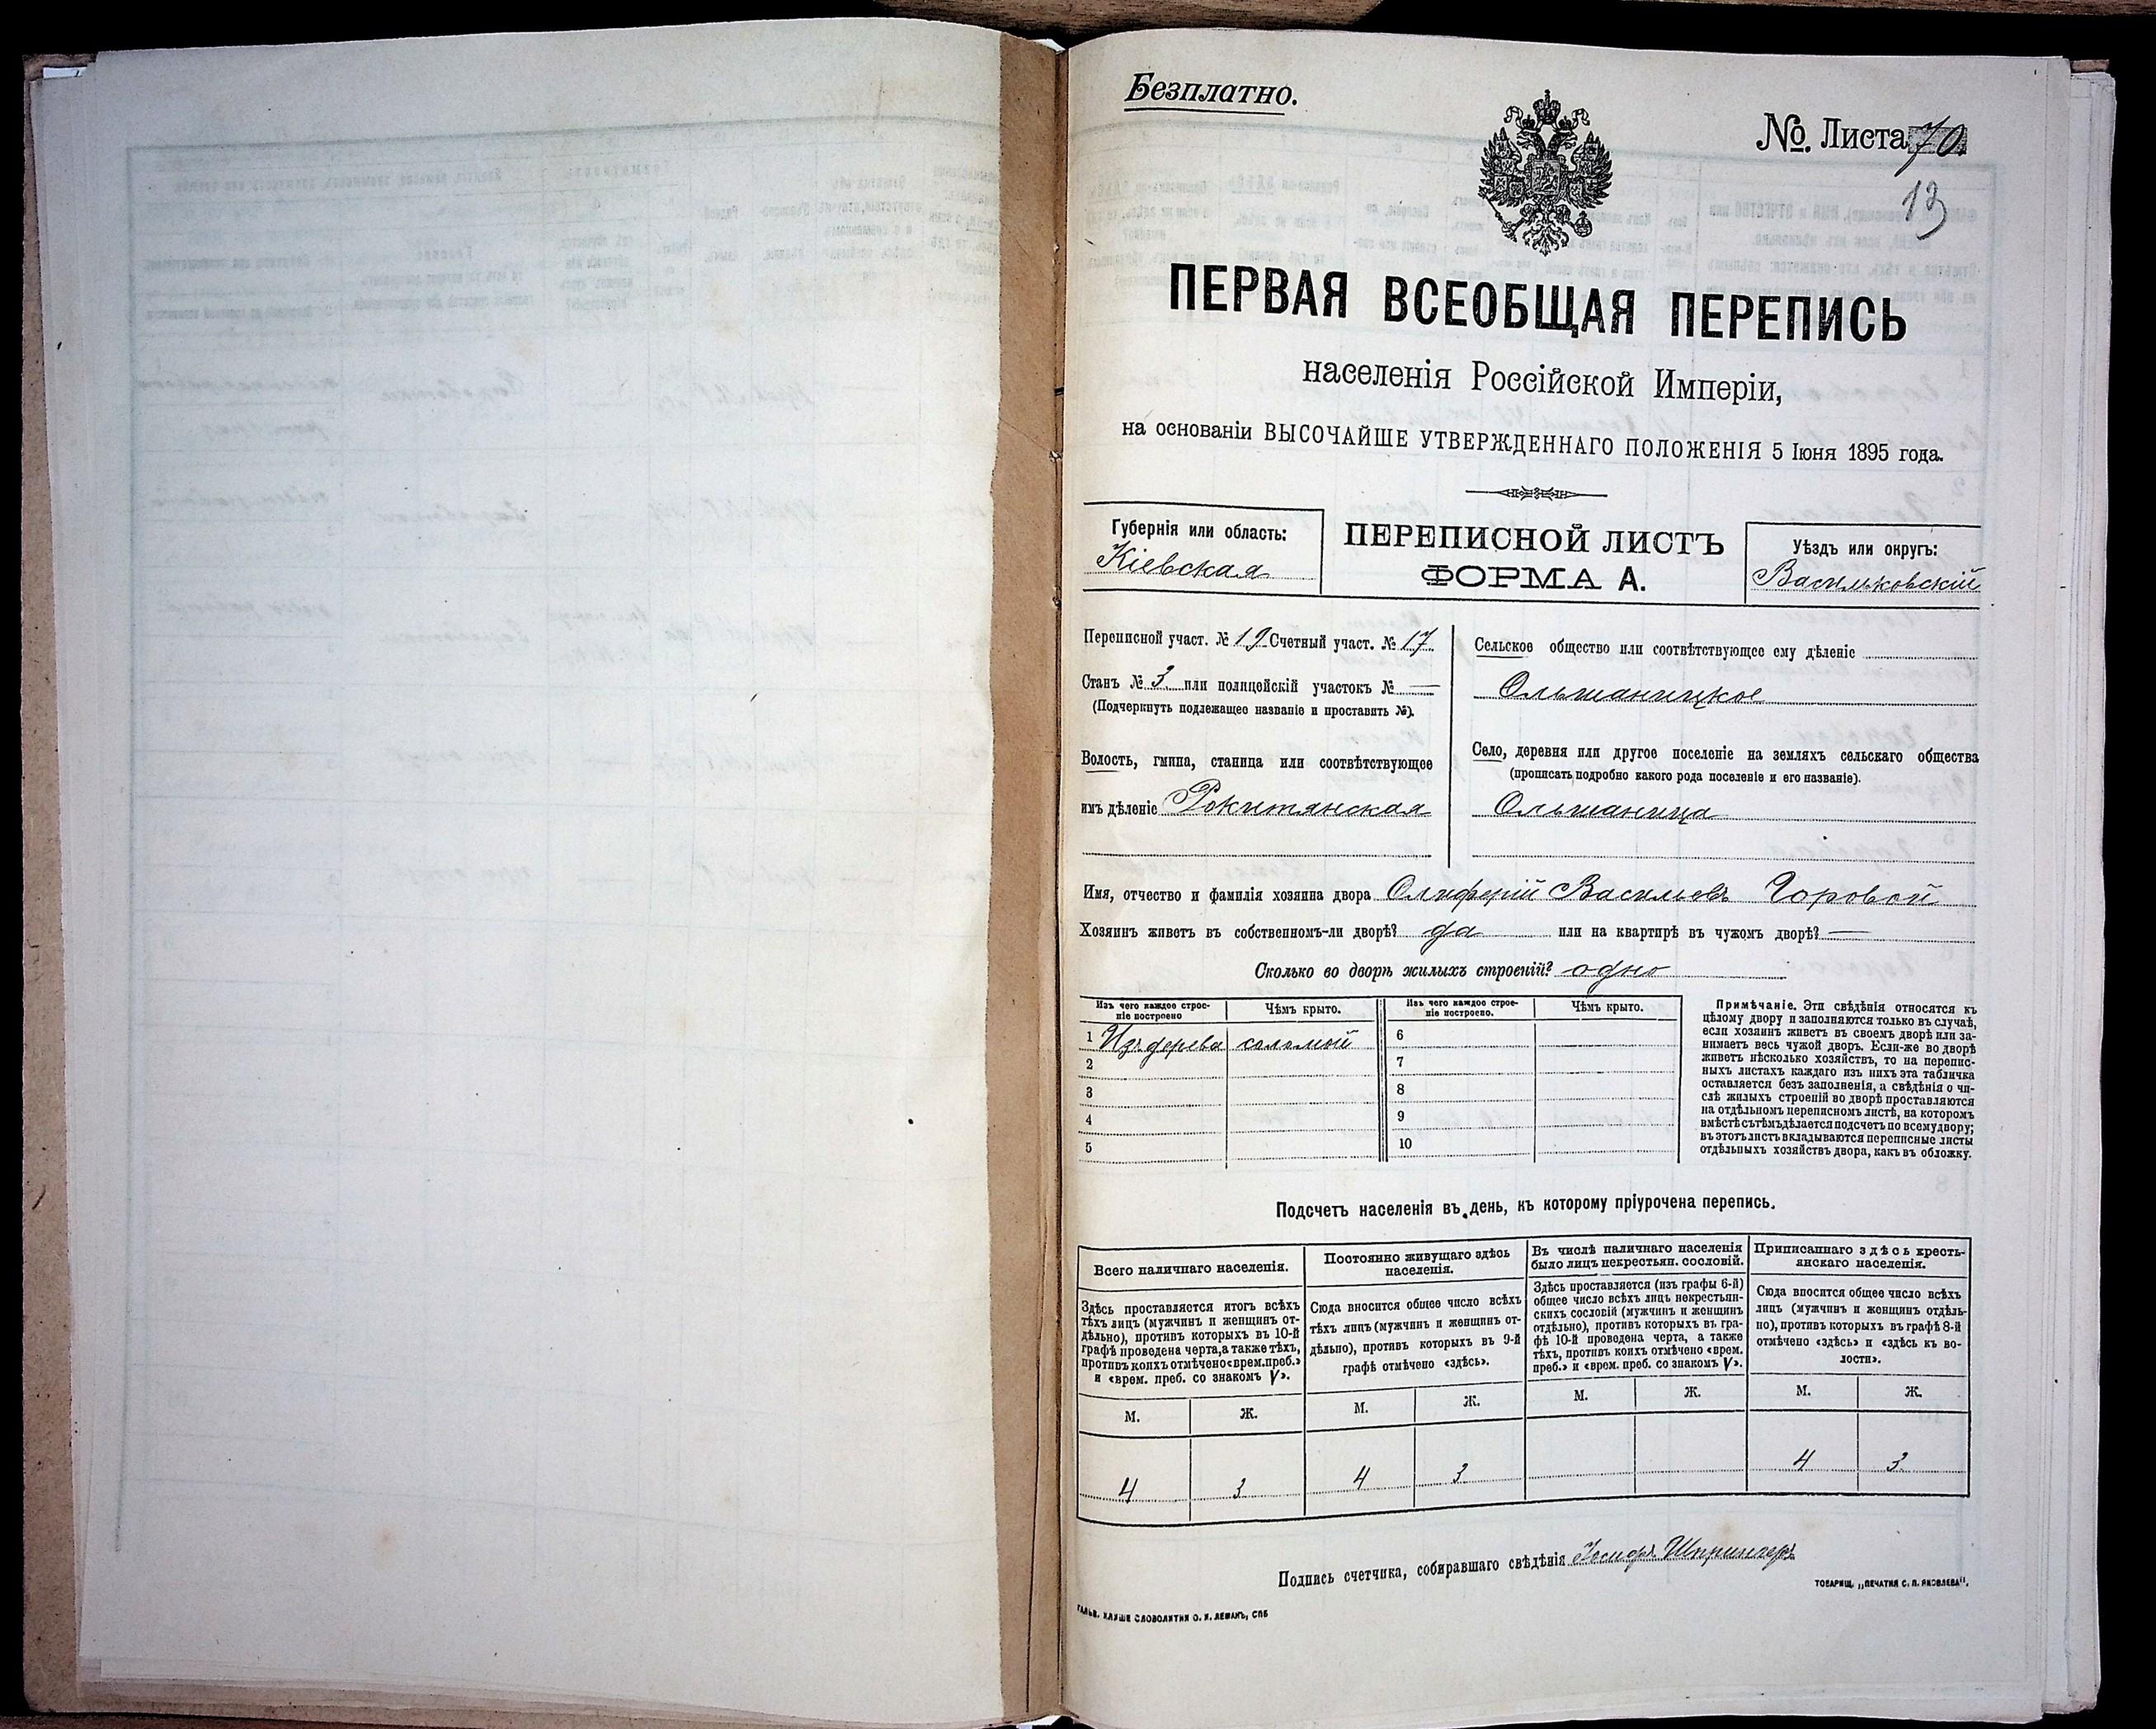 Безплатно.
№ Листа 70.
13
ПЕРВАЯ ВСЕОБЩАЯ ПЕРЕПИСЬ
населенія Россійской Имперіи,
на основаніи ВЫСОЧАЙШЕ УТВЕРЖДЕННАГО ПОЛОЖЕНІЯ 5 Іюня 1895 года.
Губернія или область:
Кіевская
ПЕРЕПИСНОЙ ЛИСТЪ
ФОРМА А.
Уѣздъ или округъ:
Васильковскій
Переписной участ. № 19 Счетный участ. № 17
Станъ № 3 или полицейскій участокъ № —
(Подчеркнуть подлежащее названіе и проставить №).
Волость, гмина, станица или соотвѣтствующее
имъ дѣленіе Рокитянская
Сельское общество или соотвѣтствующее ему дѣленіе
Ольшаницкое
Село, деревня или другое поселеніе на земляхъ сельскаго общества
(прописать подробно какого рода поселеніе и его названіе).
Ольшаница
Имя, отчество и фамилія хозяина двора Олиферій Васильевъ Горовой
Хозяинъ живетъ въ собственномъ-ли дворѣ? да или на квартирѣ въ чужомъ дворѣ? —
Сколько во дворѣ жилыхъ строеній? одно
Изъ чего каждое строе-
ніе построено
Чѣмъ крыто.
Изъ чего каждое строе-
ніе построено.
Чѣмъ крыто.
1 Изъ дерева соломой
2
3
4
5
6
7
8
9
10
Примѣчаніе. Эти свѣдѣнія относятся къ
цѣлому двору и заполняются только въ случаѣ,
если хозяинъ живетъ въ своемъ дворѣ или за-
нимаетъ весь чужой дворъ. Если-же во дворѣ
живетъ нѣсколько хозяйствъ, то на перепис-
ныхъ листахъ каждаго изъ нихъ эта табличка
оставляется безъ заполненія, а свѣдѣнія о чи-
слѣ жилыхъ строеній во дворѣ проставляются
на отдѣльномъ переписномъ листѣ, на которомъ
вмѣстѣ съ тѣмъ дѣлается подсчетъ по всему двору;
въ этотъ листъ вкладываются переписные листы
отдѣльныхъ хозяйствъ двора, какъ въ обложку.
Подсчетъ населенія въ день, къ которому пріурочена перепись.
Всего наличнаго населенія.
Здѣсь проставляется итогъ всѣхъ
тѣхъ лицъ (мужчинъ и женщинъ от-
дѣльно), противъ которыхъ въ 10-й
графѣ проведена черта, а также тѣхъ,
противъ коихъ отмѣчено «врем. преб.»
и «врем. преб. со знакомъ V».
М. Ж.
4 3
Постоянно живущаго здѣсь
населенія.
Сюда вносится общее число всѣхъ
тѣхъ лицъ (мужчинъ и женщинъ от-
дѣльно), противъ которыхъ въ 9-й
графѣ отмѣчено «здѣсь».
М. Ж.
4 3
Въ числѣ наличнаго населенія
было лицъ некрестьян. сословій.
Здѣсь проставляется (изъ графы 6-й)
общее число всѣхъ лицъ некрестьян-
скихъ сословій (мужчинъ и женщинъ
отдѣльно), противъ которыхъ въ гра-
фѣ 10-й проведена черта, а также
тѣхъ, противъ коихъ отмѣчено «врем.
преб.» и «врем. преб. со знакомъ V».
М. Ж.
Приписаннаго здѣсь кресть-
янскаго населенія.
Сюда вносится общее число всѣхъ
лицъ (мужчинъ и женщинъ отдѣль-
но), противъ которыхъ въ графѣ 8-й
отмѣчено «здѣсь» и «здѣсь къ во-
лости».
М. Ж.
4 3
Подпись счетчика, собиравшаго свѣдѣнія Іосифъ Шпрингеръ
ТОВАРИЩ. „ПЕЧАТНЯ С. П. ЯКОВЛЕВА".
ГАЛЬВ. КЛИШЕ СЛОВОЛИТНИ О. И. ЛЕМАНЪ, СПБ